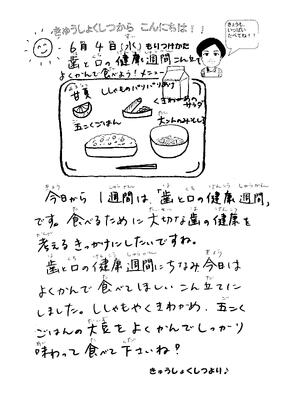 きゅうしょくしつから こんにちは！
きょうも、
いっぱい
たべてね！！
6月4日(水)もりつけかた
歯と口の健康週間こん立て
よくかんで食べよう！メニュー
甘夏
ししゃものパリパリあげ
くきわかめの
サラダ
五こくごはん
大こんのみそしる
今日から1週間は、「歯と口の健康週間」
です。食べるために大切な歯の健康を
考えるきっかけにしたいですね。
歯と口の健康週間にちなみ今日は
よくかんで食べてほしいこん立てに
しました。ししゃもやくきわかめ、五こく
ごはんの大豆をよくかんでしっかり
味わって食べて下さいね？
きゅうしょくしつより♪